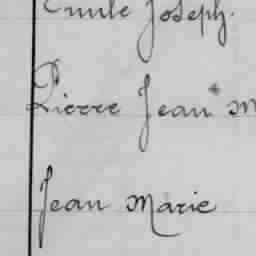 Emile Joseph.
Pierre Jean M
Jean Marie